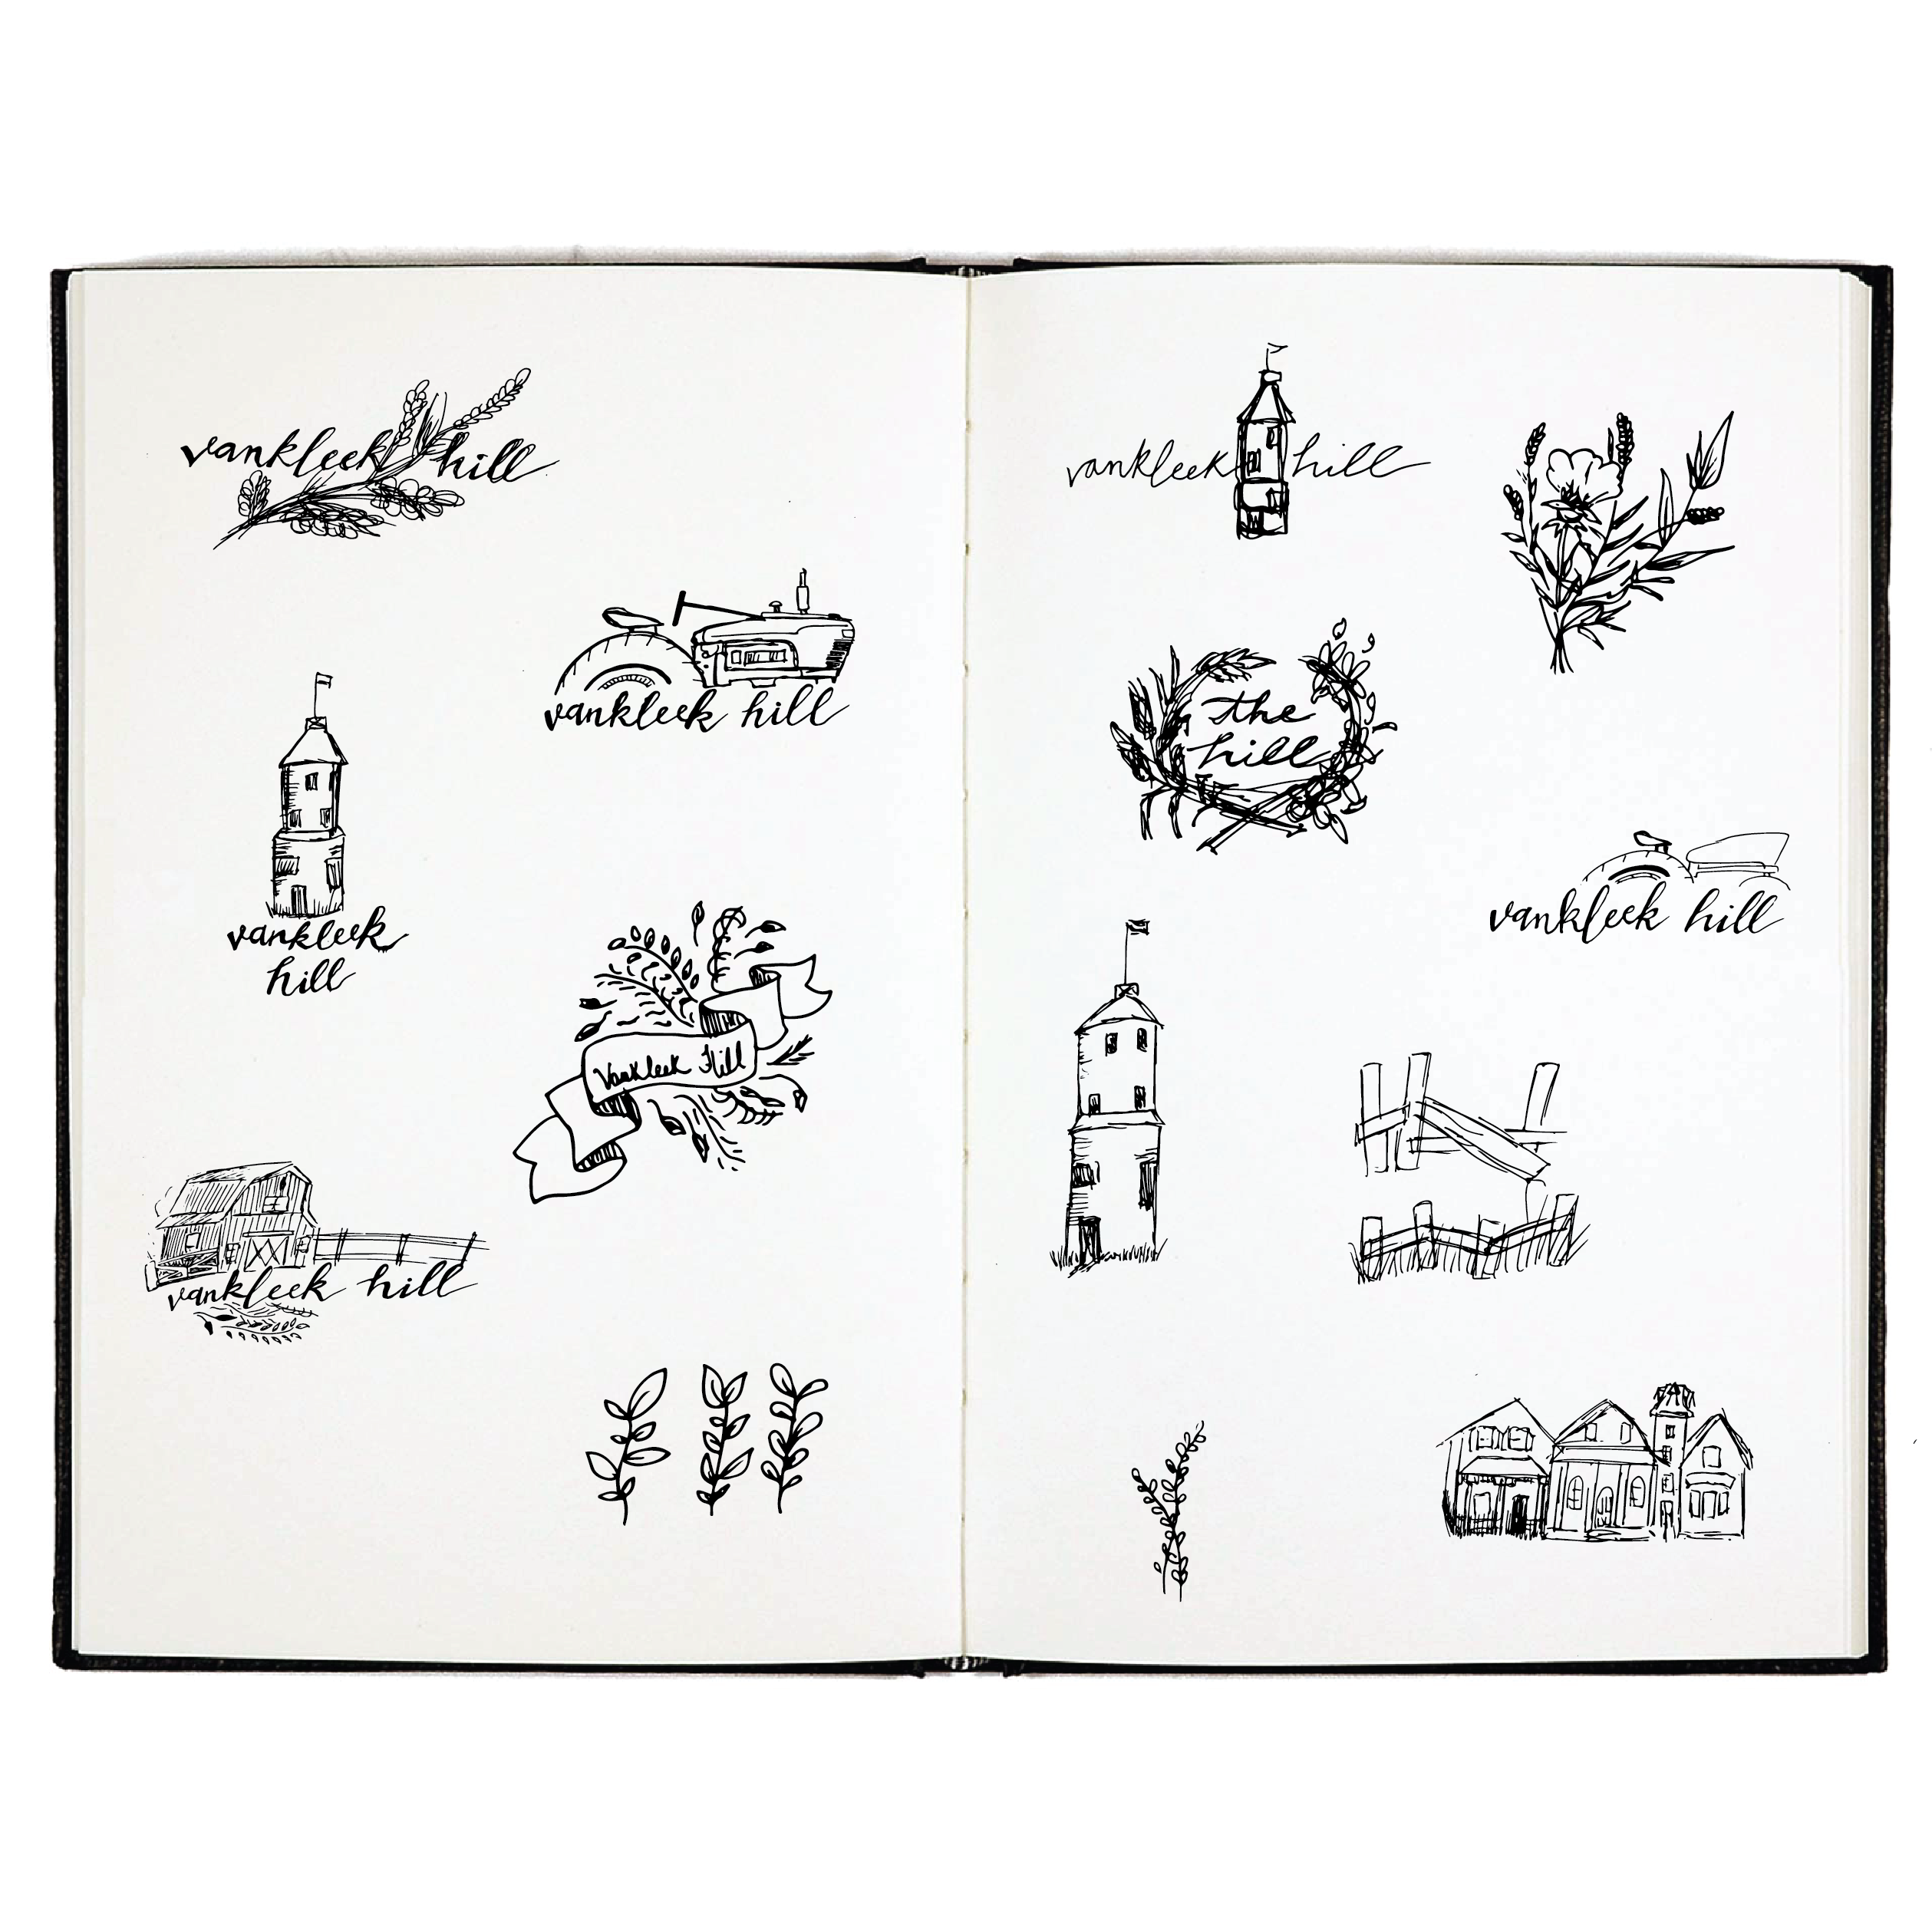 vankleek hill
vankleek hill
vankleek
hill
Vankleek Hill
vankleek hill
vankleek hill
the
hill
vankleek hill